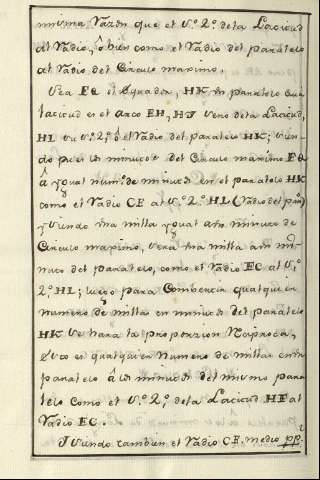 misma Razon que el S.º 2.º de la Latitud
al Radio, ô bien como el Radio del paralelo
al Radio del Circulo maximo.
Sea EQ el Equador, HK un paralelo cuia
latitud es el arco EH, HI seno de la Latitud,
HL su S.º 2.º ô el Radio del paralelo HK; sien-
do pues los minutos del Circulo maximo EQ
â ygual num.º de minutos en el paralelo HK
como el Radio CE al S.º 2.º HL (Radio del p)
y siendo una milla ygual a un minuto de
Circulo maximo, sera una milla a un mi-
nuto del paralelo, como el Radio EC al S.º
2.º HL; luego para Combertir qualquier
numero de millas en minutos del paralelo
HK se hara la proporsion Reciproca,
esto es qualquier numero de millas en un
paralelo â los minutos del mismo para-
lelo como el S.º 2.º de la Latitud HE al
Radio EC.
I siendo tambien el Radio CE. medio pp.